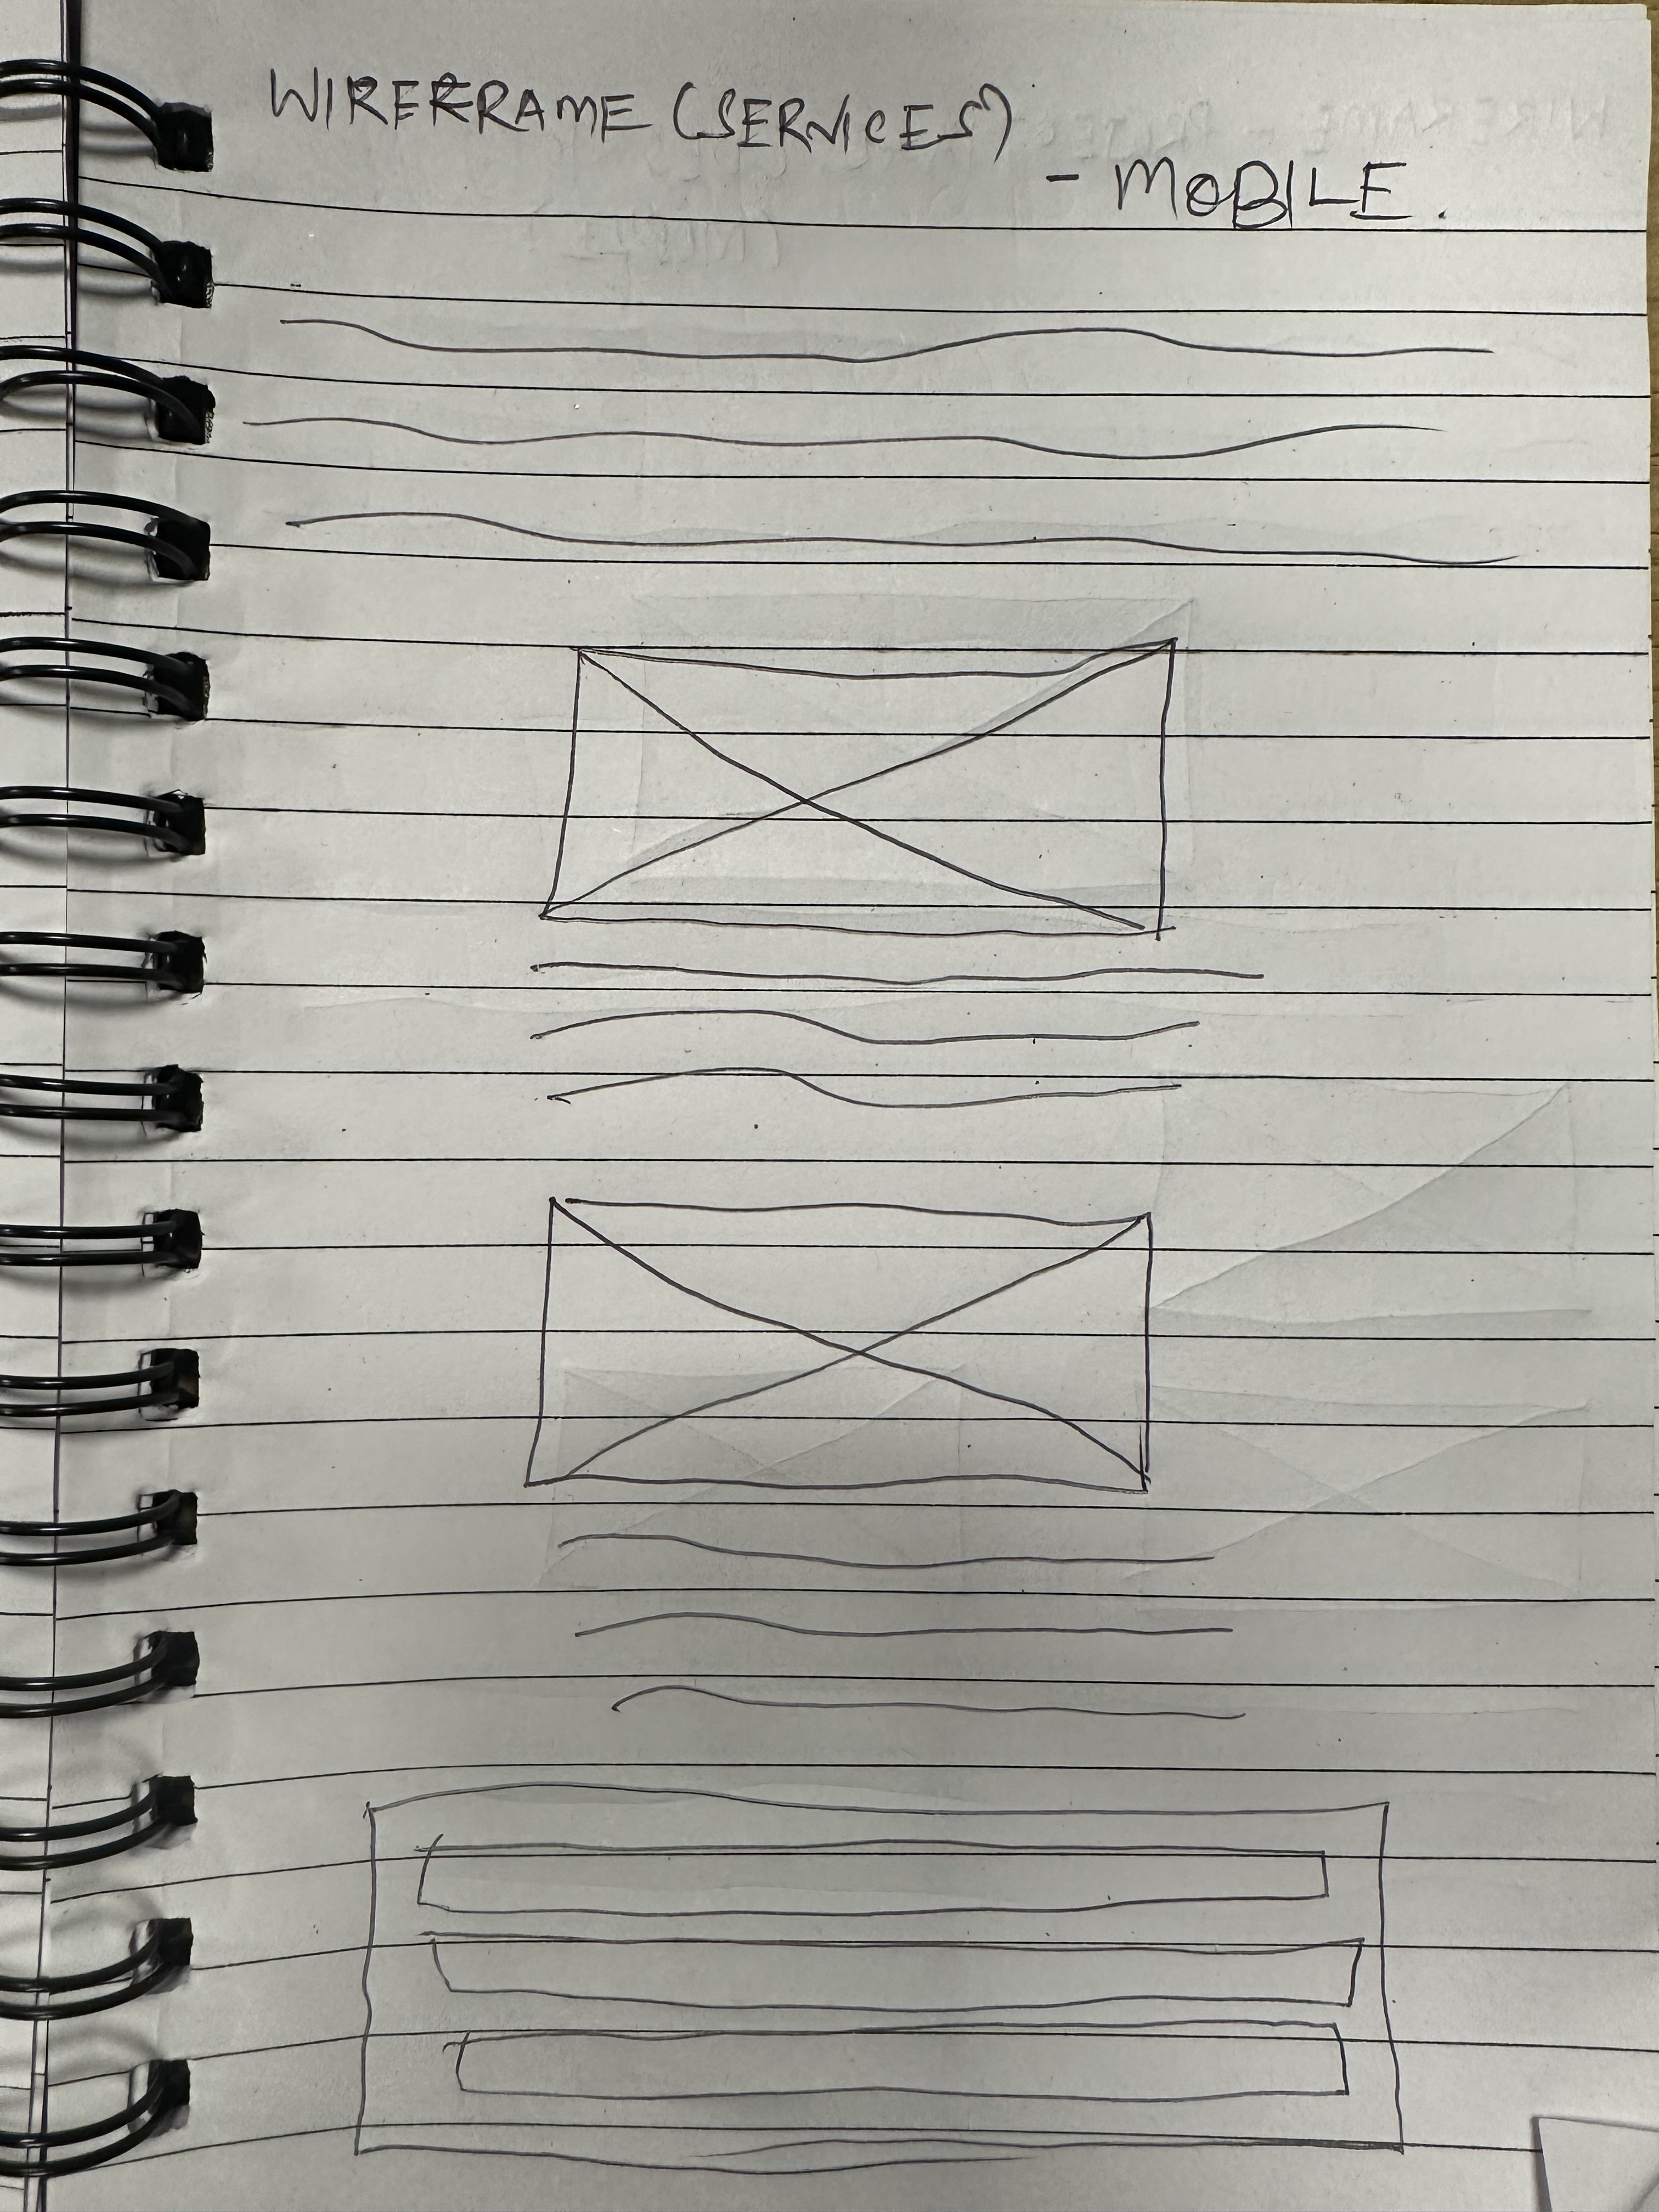 WIREFRAME (SERVICES)
- MOBILE.